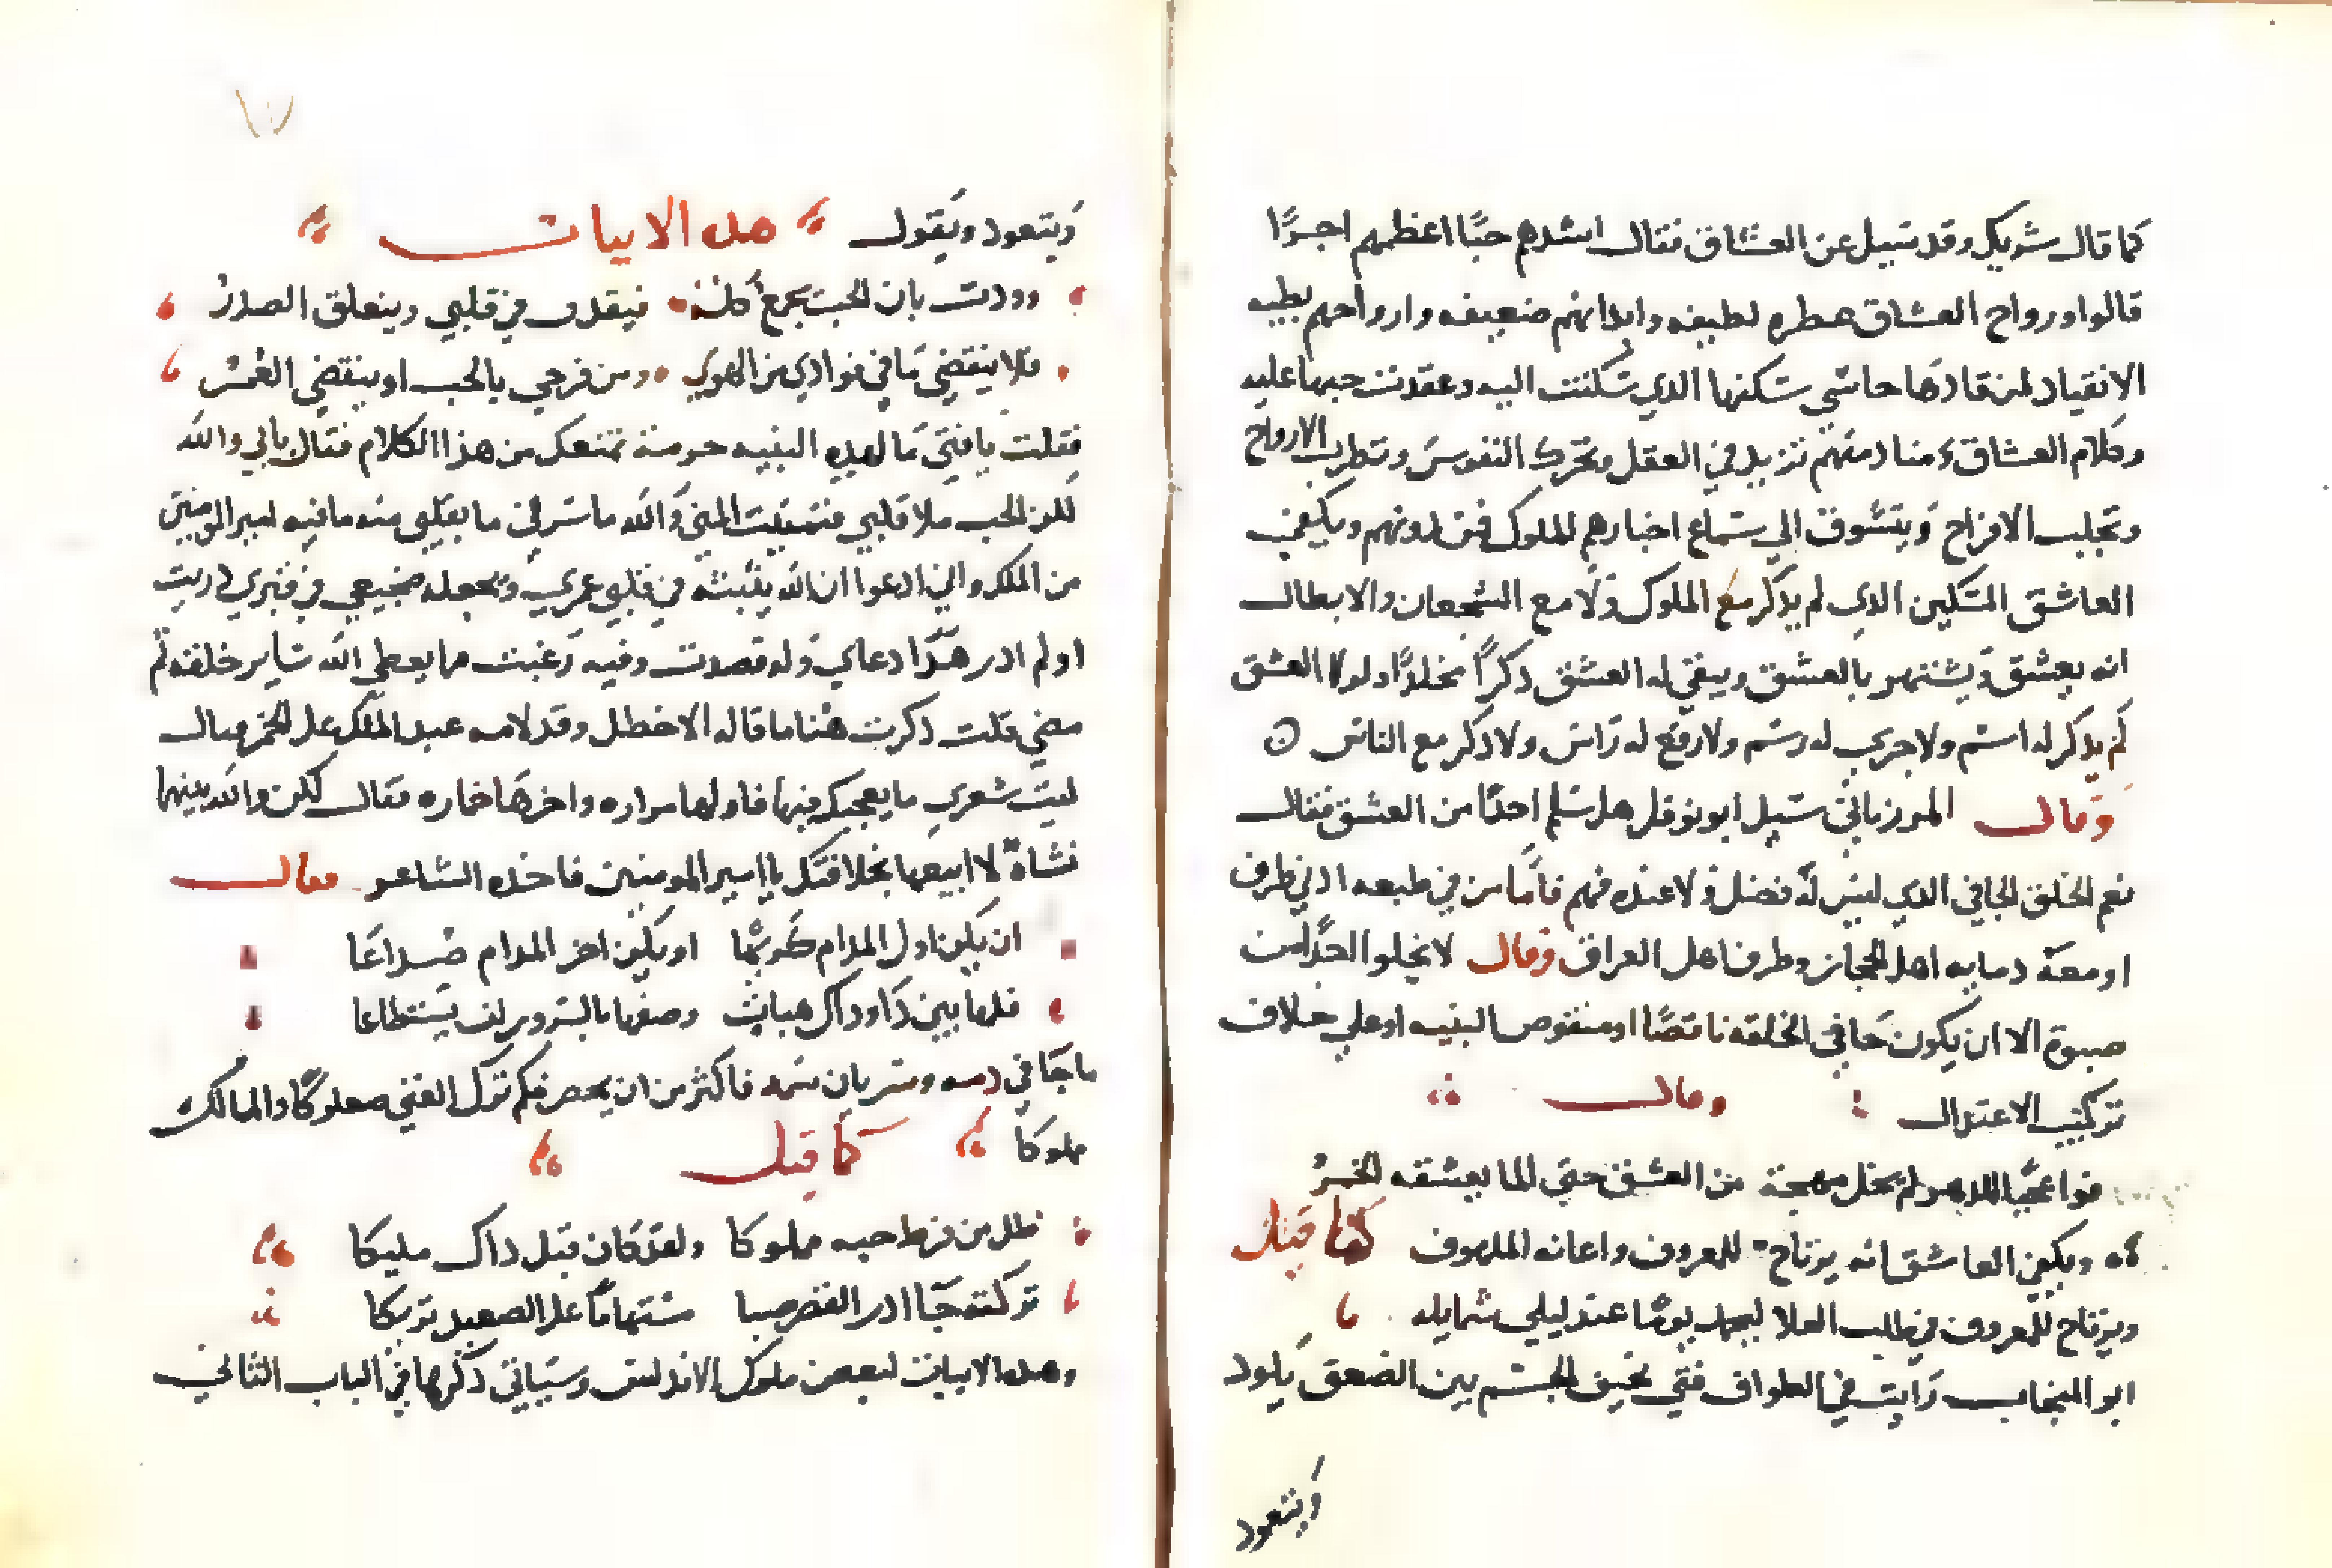 كما قال شريك وقد سيل عن العشاق فقال اشدهم حبًا اعظمهم اجرًا
قالوا وارواح العشاق عطره لطيفه وابدانهم ضعيفه وارواحهم بطيه
الانقياد لمن قادها حاشي سكنها الدي سكنت اليه وعقدت حبها عليه
وكلام العشاق ومنادمتهم تزيد في العقل وتحرك النفوس وتطرب الارواح
وتجلب الافراح ويتشوق الي سماع اخبارهم الملوك فمن دونهم ويكفي
العاشق المسكين الدي لم يدكر مع الملوك ولا مع الشجعان والابطال
انه يعشق ويشتهر بالعشق ويبقي له العشق دكرًا مخلدًا ولولا العشق
لم يدكر له اسم ولا جري له رسم ولا رفع له راس ولا دكر مع الناس
وقال المرزباني سيل ابو نوفل هل سلم احدًا من العشق فقال
نعم الخلف الجافي الدي ليس له فضل ولا عنده فهم فاما من في طبعه ادني ظرف
او معه دماثه اهل الحجاز وظرف اهل العراق وقال لا يخلوا احدًا من
صبوة الا ان يكون جافي الخلقه ناقصًا او منقوص البنيه او علي خلاف
تركيب الاعتدال وقال
فواعجبًا للدهر لم يخل مهجة من العشق حتي الما يعشقه الخمرُ
ويكفي العاشق انه يرتاح للمعروف واعانه الملهوف كما قيل
ويرتاح للمعروف في طلب العلا ليحمد يومًا عند ليلي شمايله
ابو المنجاب رايت في الطواف فتي نحيف الجسم بين الضعف يلود
ويتعود
١٧
ويتعود ويقول هده الابيات
وودت بان الحب يجمع كله فيقدف في قلبي وينغلق الصدرُ
فلا ينقضي ما في فوادي من الهوي ومن فرحي بالحب او ينقضي العُمْرُ
فقلت يا فتي ما لهده البنيه حرمة تمنعك من هدا الكلام فقال بلي والله
لكن الحب ملا قلبي فتمنيت المني والله ما سرني ما بقلبي منه ما فيه امير المومنين
من الملك واني ادعوا ان الله يثبته في قلبي عمري ويجعله ضجيعي في قبري دريت
او لم ادر هدا دعاي وله قصدت وفيه رغبت مما يعطي الله ساير خلقه ثم
مضي قلت دكرت هنا ما قاله الاخطل وقد لامه عبد الملك علي الخمر فقال
ليت شعري ما يعجبك فيها فاولها مراره واخرها خماره فقال لكن والله بينهما
نشاة لا ابيعها بخلافتك يا امير المومنين فاخده الشاعر فقال
ان يكون اول المدام كريها او يكون اخر المدام صداعَا
فلها بين دا وداك هبات وصفها بالسرور لن يستطاعا
ما جا في دمه وسريان سمه فاكثر من ان يحصر فكم ترك الغني صعلوكًا والمالك
مملوكا كما قيل
ظل من فرط حبه مملوكا ولقد كان قبل داك مليكا
تركته جاادر القصر صبا مستهامًا علي الصعيد تريكا
وهده الابيات لبعض ملوك الاندلس وسياتي دكرها في الباب الثاني